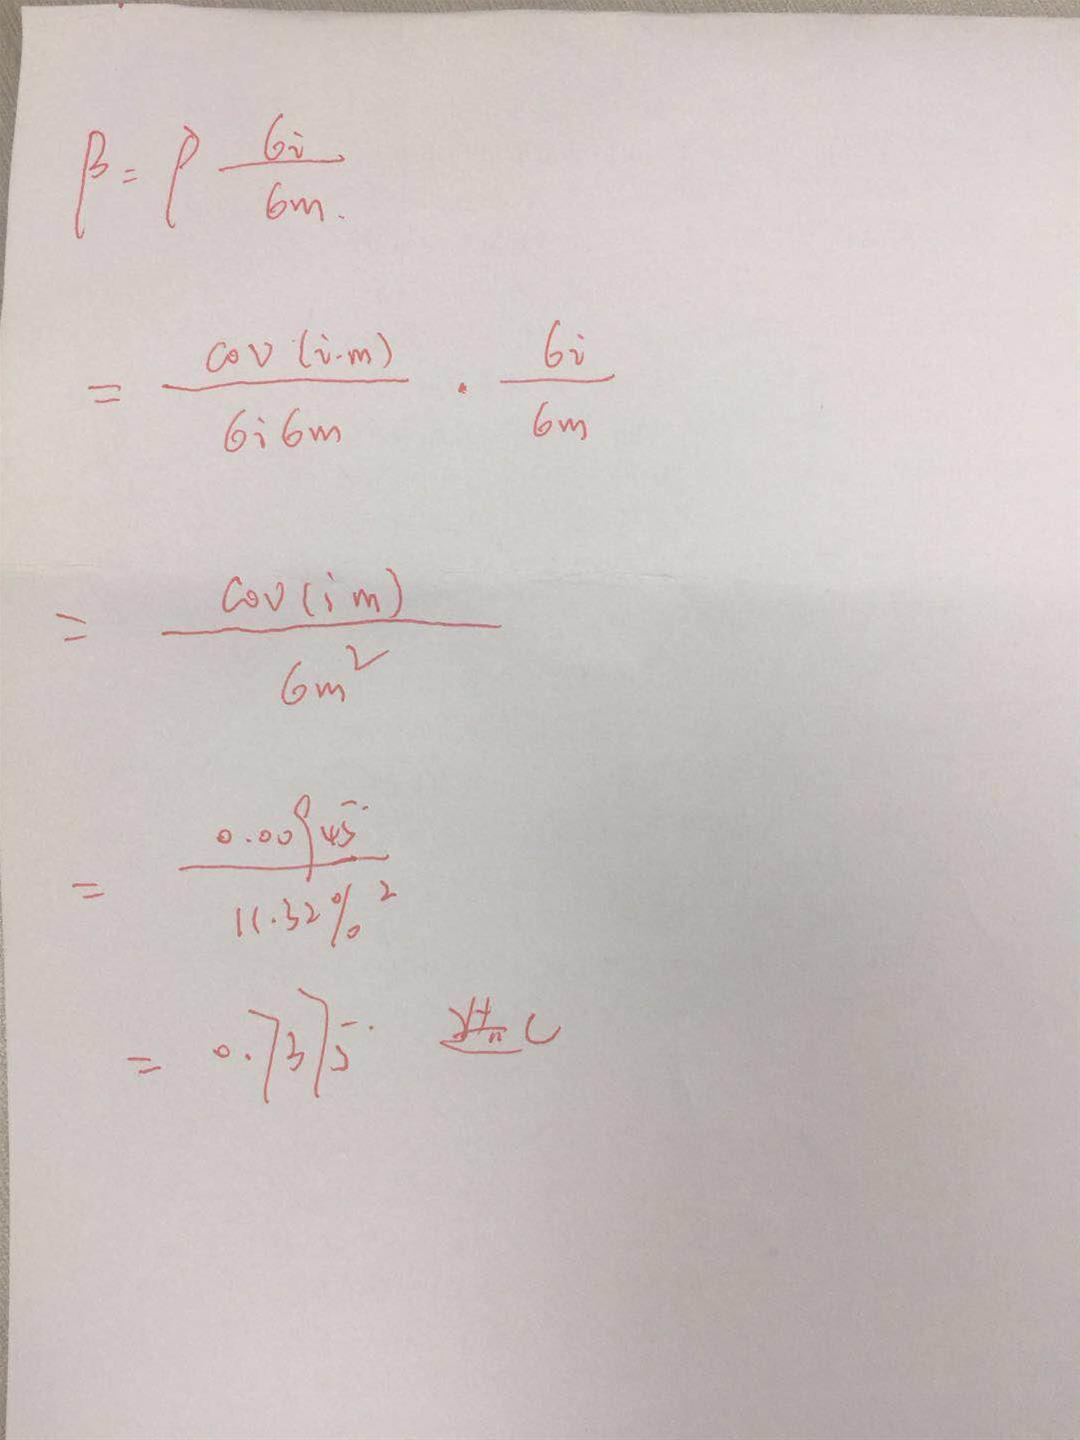 β = ρ σi / σm.
= cov (i·m) / σi σm · σi / σm
= cov (i m) / σm²
= 0.00945 / 11.32%²
= 0.7375 选 C